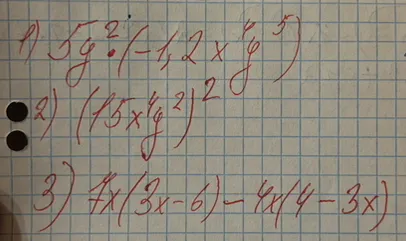 1) 5y²·(-1,2x⁴y⁵)
2) (15x⁴y²)²
3) 7x(3x-6)-4x(4-3x)